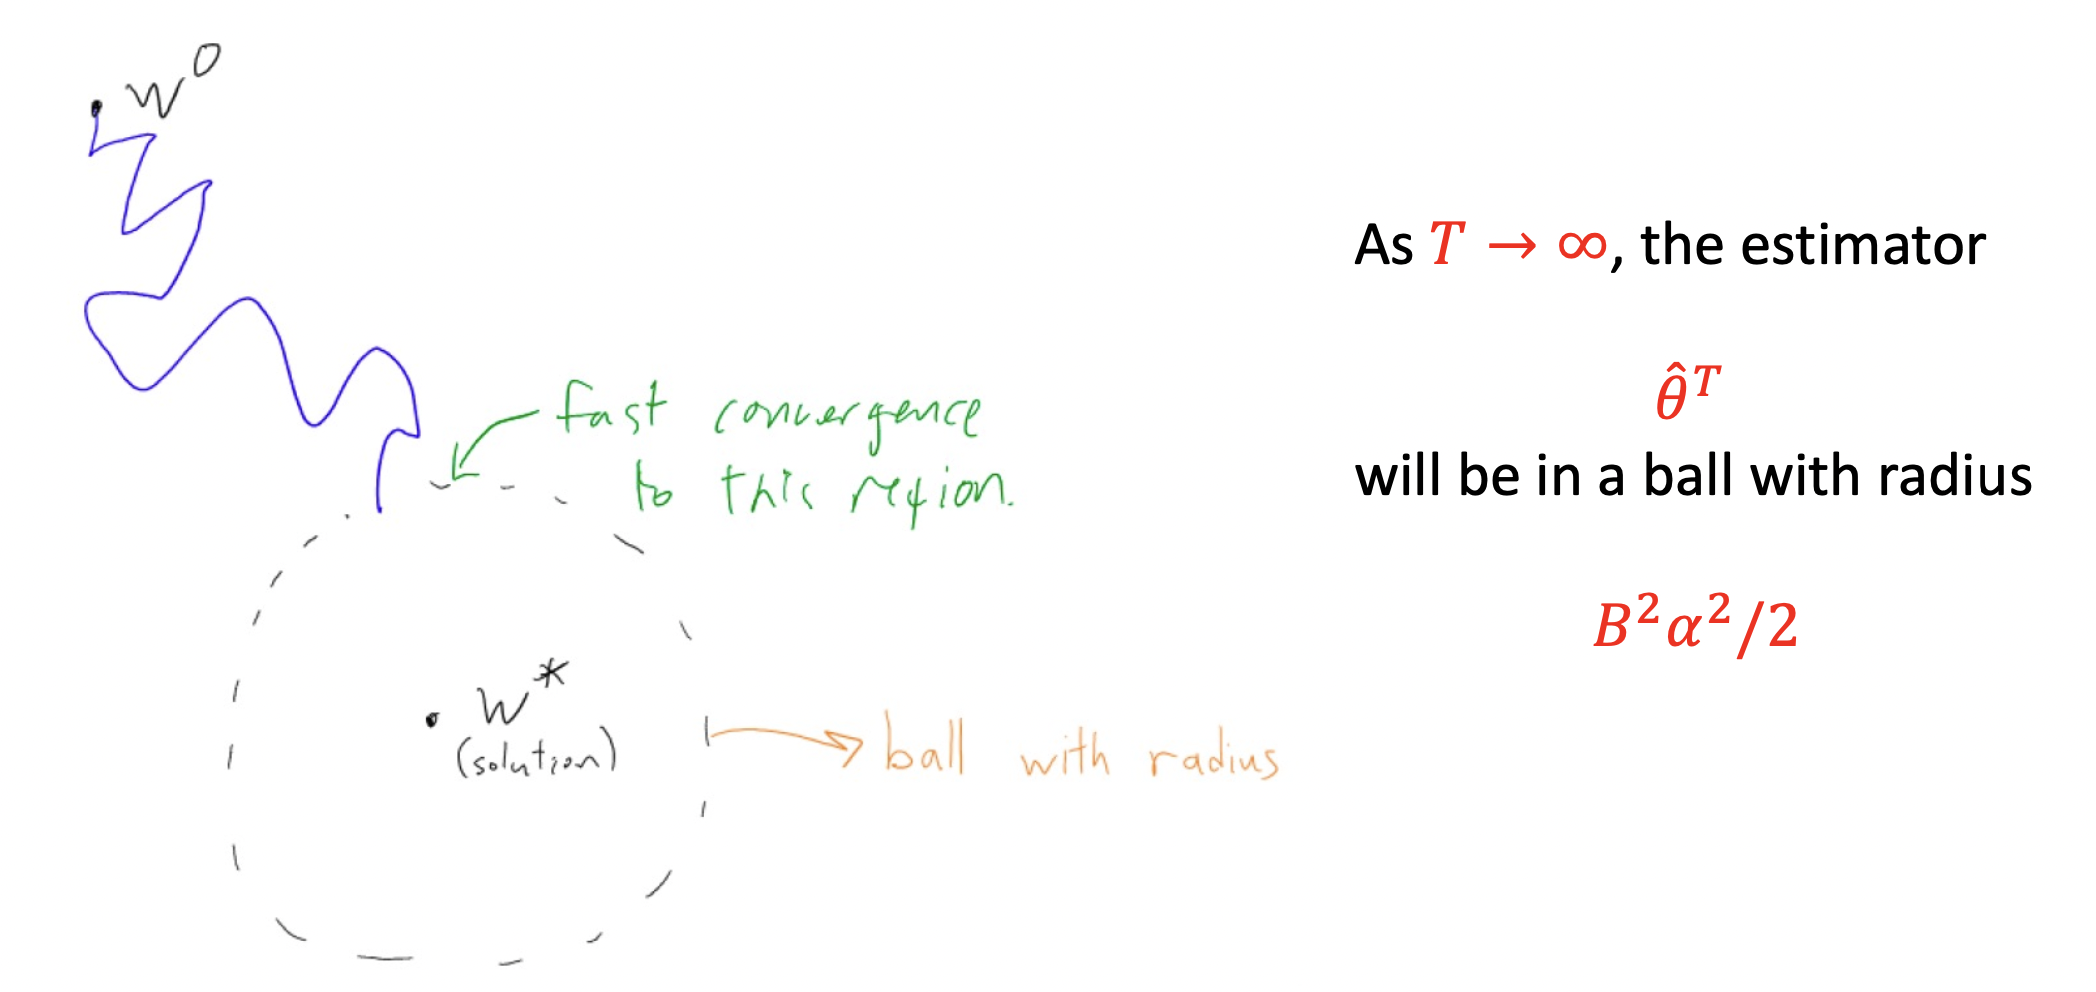 w⁰
fast convergence
to this region.
w*
(solution)
ball with radius
As T → ∞, the estimator
θ̂ᵀ
will be in a ball with radius
B²α²/2